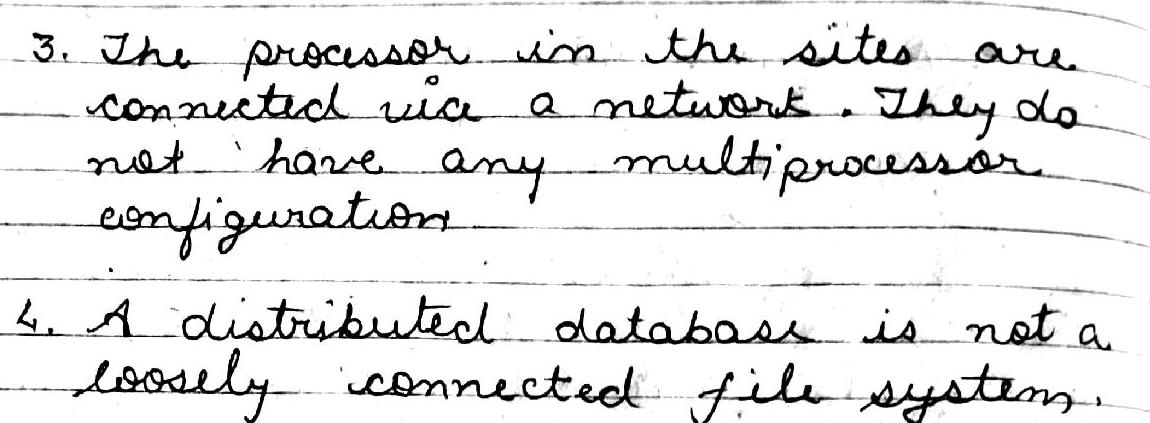 3. The processor in the sites are
connected via a network. They do
not have any multiprocessor
configuration
4. A distributed database is not a
loosely connected file system.